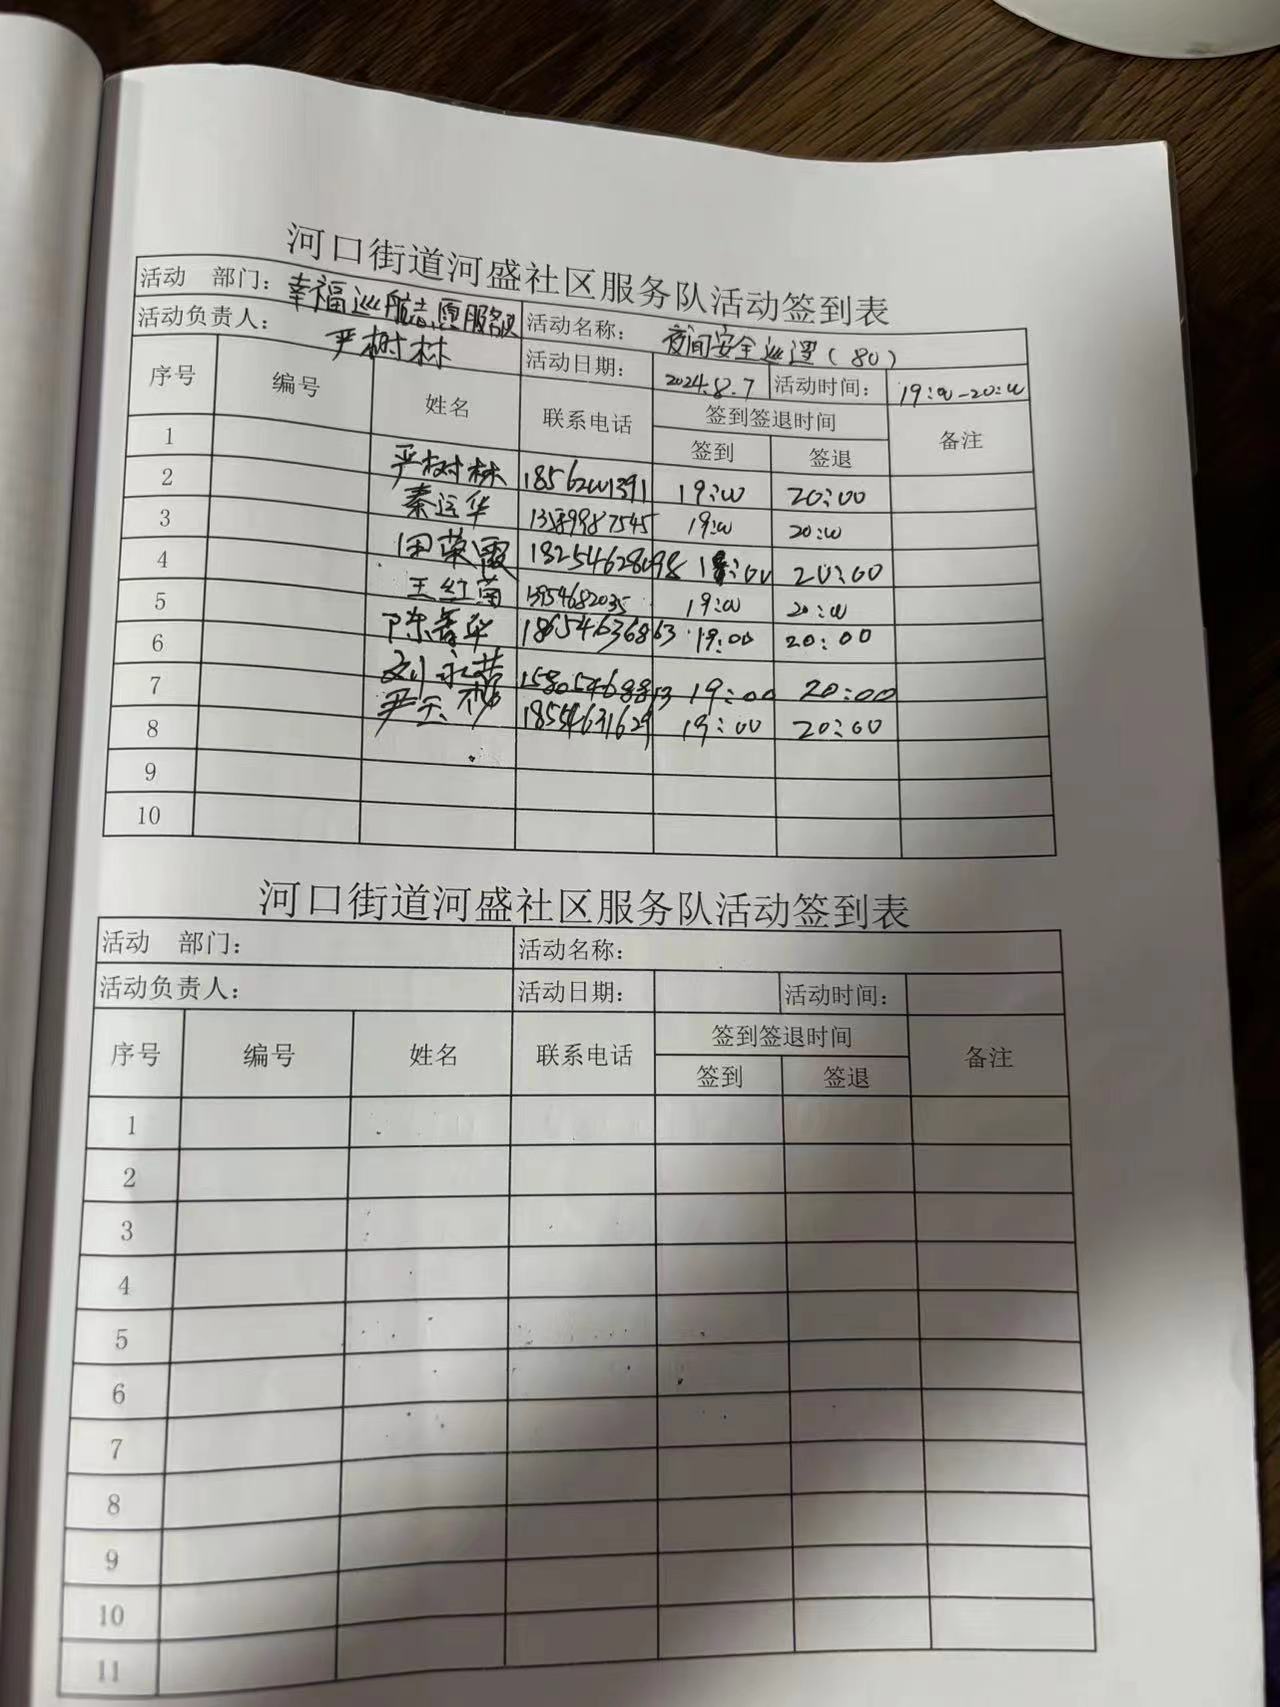 河口街道河盛社区服务队活动签到表
活动 部门：幸福巡航志愿服务队 活动名称：夜间安全巡逻（80）
活动负责人：严树林 活动日期：2024.8.7 活动时间：19:00-20:00
序号 编号 姓名 联系电话 签到签退时间 备注
签到 签退
1 严树林 18562001391 19:00 20:00
2 秦运华 13589987545 19:00 20:00
3 田荣霞 18254628098 19:00 20:00
4 王红菊 13954682035 19:00 20:00
5 陈春华 18654636863 19:00 20:00
6 刘永芸 15805468813 19:00 20:00
7 严玉 18554631629 19:00 20:00
8
9
10
河口街道河盛社区服务队活动签到表
活动 部门： 活动名称：
活动负责人： 活动日期： 活动时间：
序号 编号 姓名 联系电话 签到签退时间 备注
签到 签退
1
2
3
4
5
6
7
8
9
10
11